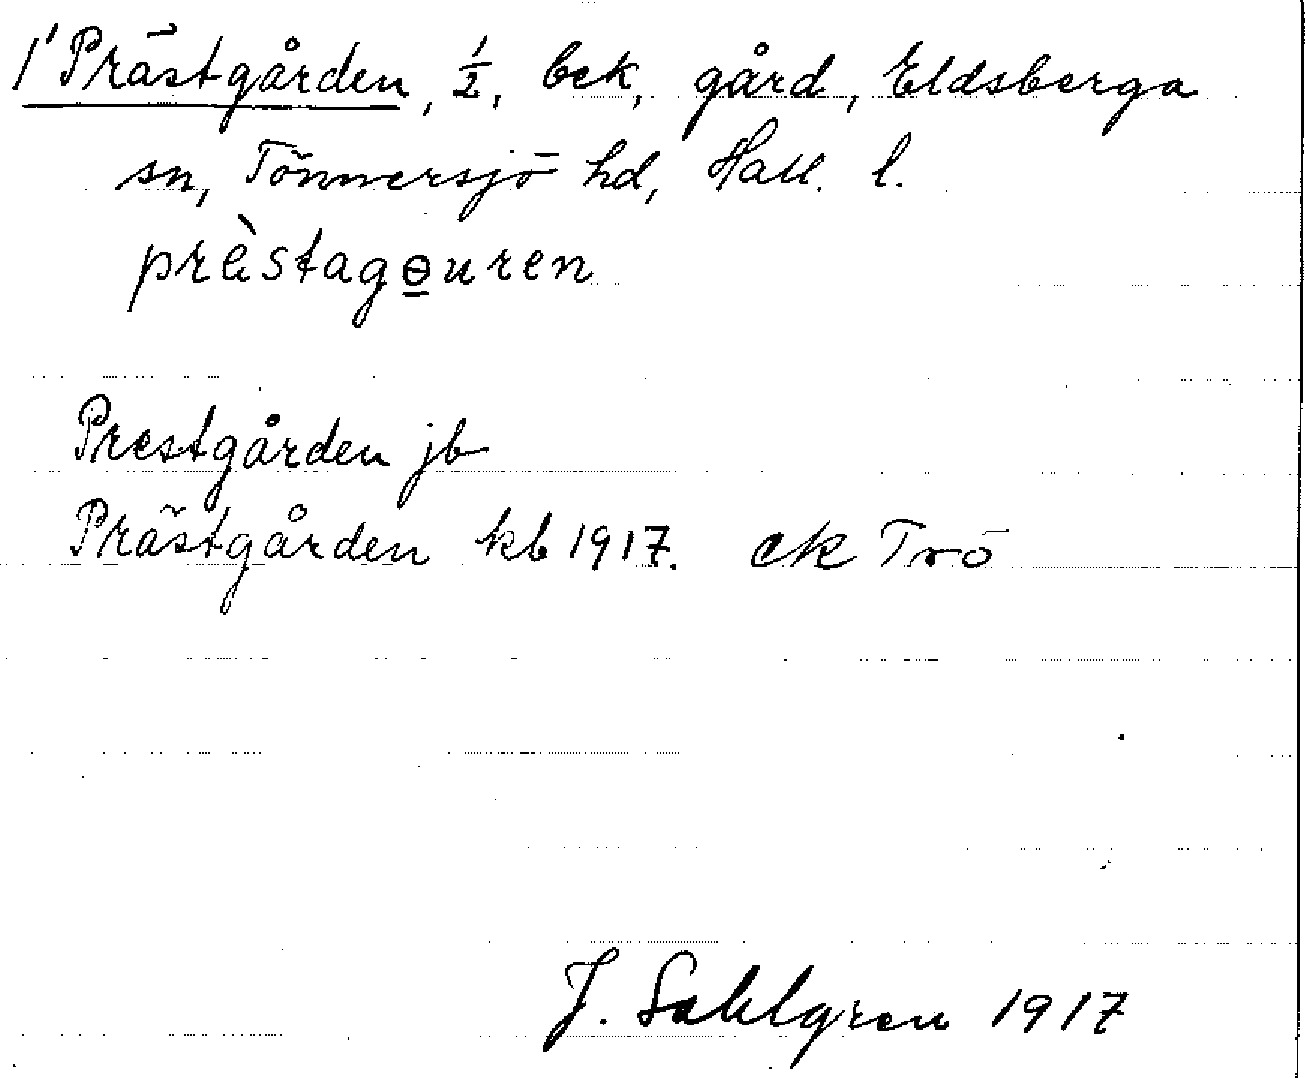 1' Prästgården, 1/2, bek, gård, Eldsberga
sn, Tönnersjö hd, Hall. l.
prèstagɵuren
Prestgården jb
Prästgården kb 1917. ek Trö
J. Sahlgren 1917